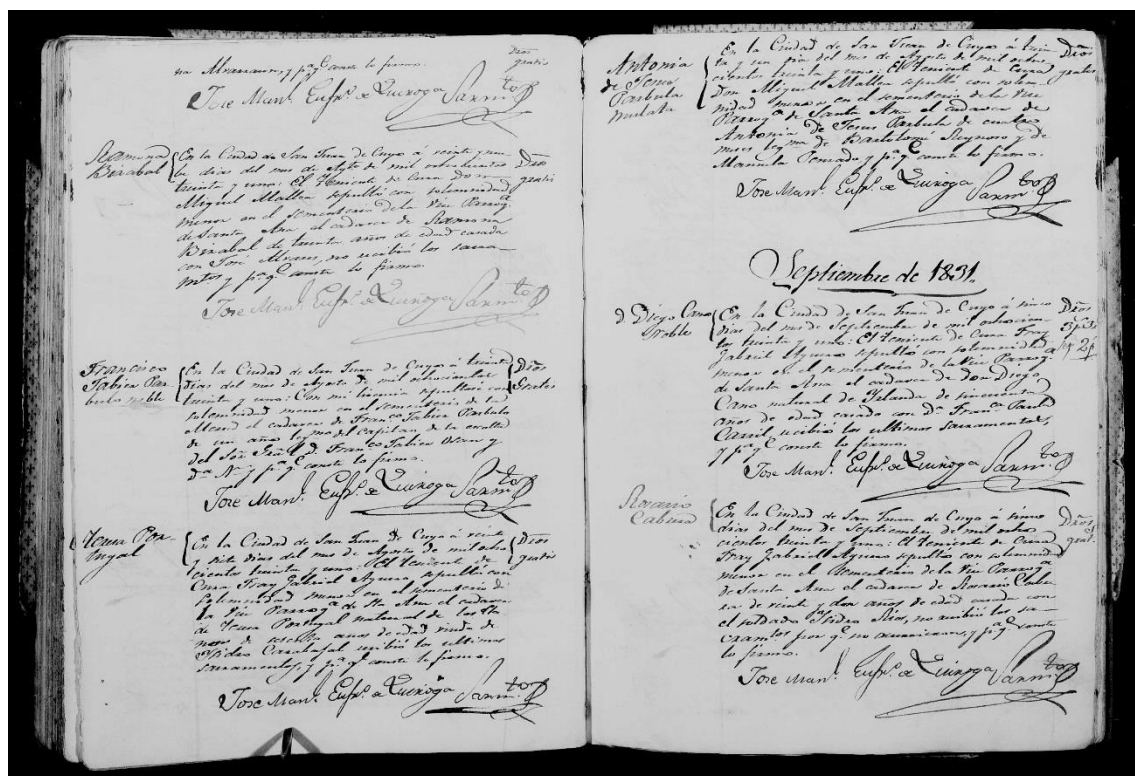 Dros
gratis
y pa. q.e conste lo firmo.
Jose Man.l Eufr.o de Quiroga Sarm.to
Ramona
Birabal
En la Ciudad de San Juan de Cuyo á veinte y nue
be dias del mes de Agto de mil ochocientos
treinta y uno: El Teniente de Cura don
Miguel Mallea sepultó con solemnidad
menor en el sementerio de la Vice Parroq.a
de Santa Ana el cadaver de Ramona
Birabal de treinta años de edad casada
con José no recibió los sacra
mtos y pa. q.e conste lo firmo.
Dros
gratis
Jose Man.l Eufr.o de Quiroga Sarm.to
Francisco
Jabier Par
bulo noble
En la Ciudad de San Juan de Cuyo á treinta
dias del mes de Agosto de mil ochocientos
treinta y uno: Con mi licencia sepultó con
solemnidad menor en el sementerio de la
el cadaver de Fran.co Jabier Parbulo
de un año leg.mo del Capitan de la escolta
del Sor Gral D. Fran.co Jabier y
Da. N. y pa. q.e conste lo firmo.
Dros
Gratis
Jose Man.l Eufr.o de Quiroga Sarm.to
Por
tugal
En la Ciudad de San Juan de Cuyo á veinte
y siete dias del mes de Agosto de mil ocho
cientos treinta y uno: El Teniente de
Cura Fray Gabriel sepultó con
solemnidad menor en el sementerio de
la Vice Parroq.a de Sta Ana el cadaver
de Portugal natural de los Lla
nos de años de edad viuda de
Isidro Carabajal recibió los ultimos
sacramentos, y pa. q.e conste lo firmo.
Dros
gratis
Jose Man.l Eufr.o de Quiroga Sarm.to
Antonia
de Jesus
Parbula
mulata
En la Ciudad de San Juan de Cuyo á trein
ta y un dia del mes de Agosto de mil ocho
cientos treinta y uno: El Teniente de Cura
Don Miguel Mallea sepultó con solem
nidad menor en el sementerio de la Vice
Parroq.a de Santa Ana el cadaver de
Antonia de Jesus Parbula de cuatro
meses leg.ma de Bartolomé Reynoso y de
Manuela y pa. q.e conste lo firmo.
Dros
gratis
Jose Man.l Eufr.o de Quiroga Sarm.to
Septiembre de 1831.
d. Diego Cano
noble
En la Ciudad de San Juan de Cuyo á cinco
dias del mes de Septiembre de mil ochocien
tos treinta y uno: El Teniente de Cura Fray
Gabriel sepultó con solemnidad
menor en el sementerio de la Vice Parroq.a
de Santa Ana el cadaver de don Diego
Cano natural de Yrlanda de cincuenta
años de edad casado con Da. Fran.ca Paula
Carril, recibió los ultimos sacramentos,
y pa. q.e conste lo firmo.
Dros
Jose Man.l Eufr.o de Quiroga Sarm.to
Rosario
Cabrera
En la Ciudad de San Juan de Cuyo á cinco
dias del mes de Septiembre de mil ocho
cientos treinta y uno: El Teniente de Cura
Fray Gabriel sepultó con solemnidad
menor en el sementerio de la Vice Parroq.a
de Santa Ana el cadaver de Rosario Cabre
ra de veinte y dos años de edad casada con
el soldado Isidro no recibió los sa
cramtos por q.e no avisaron, y pa. q.e conste
lo firmo.
Dros
grat.s
Jose Man.l Eufr.o de Quiroga Sarm.to